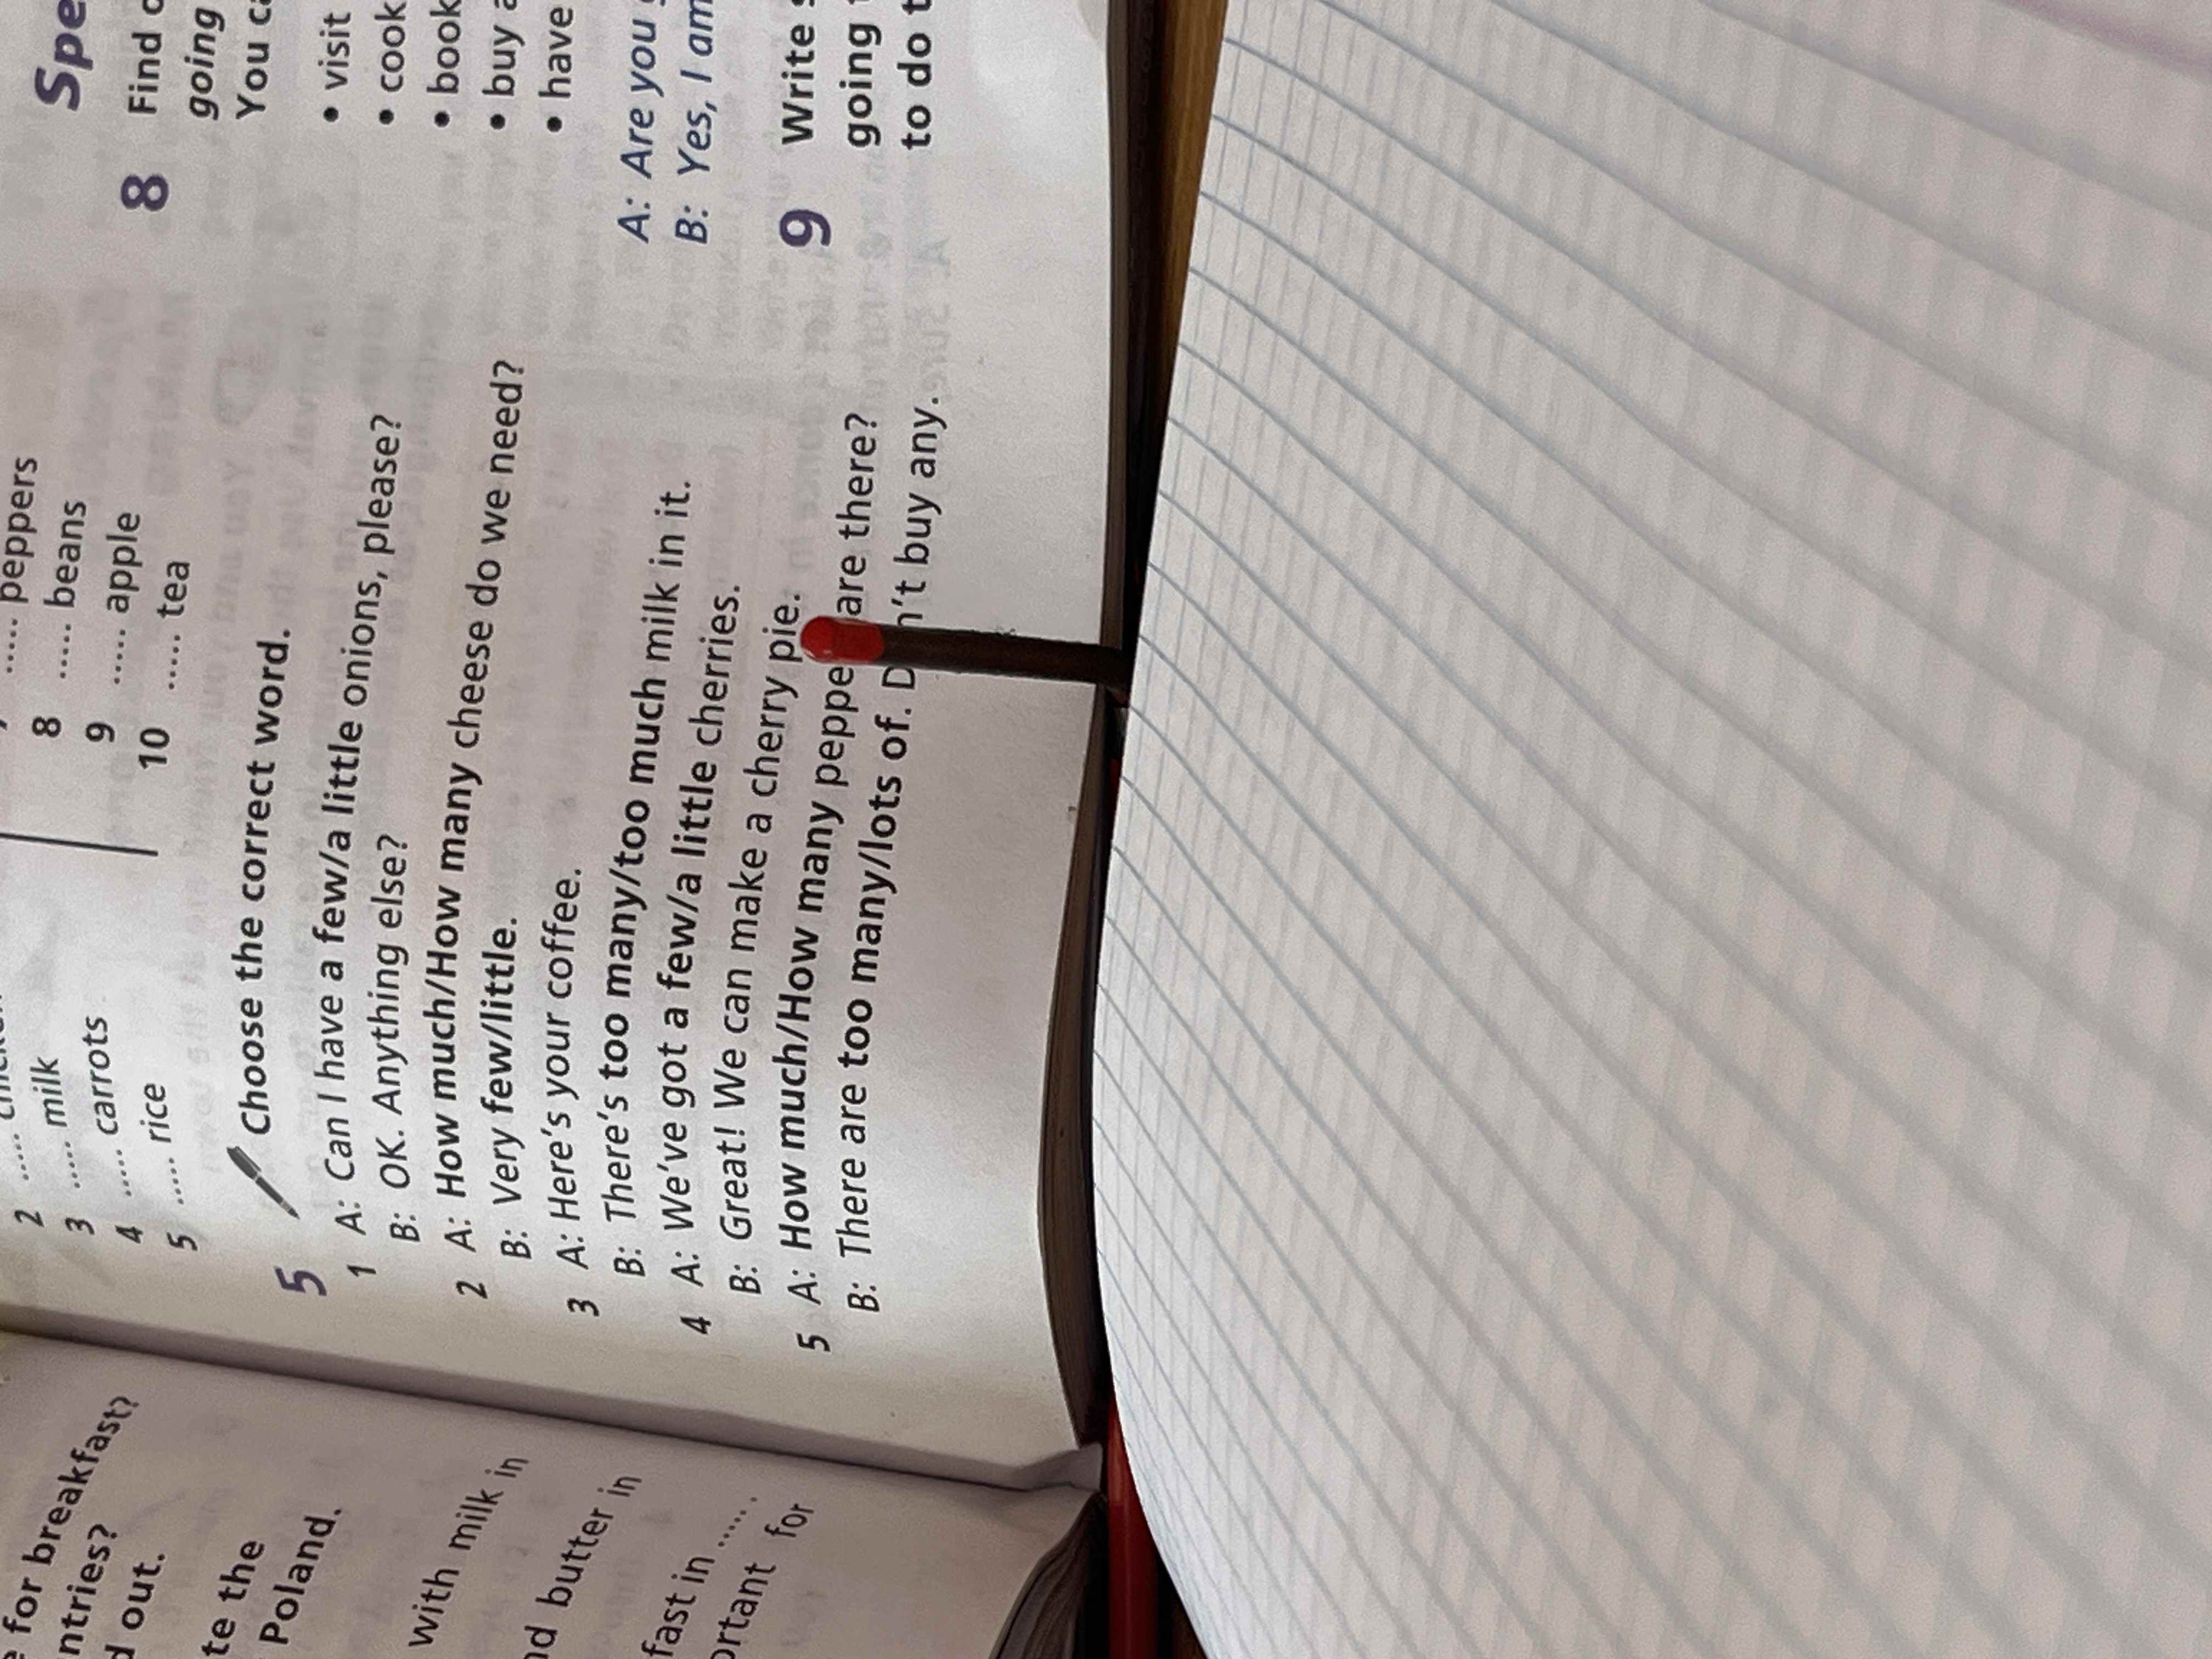 for breakfast?
ntries?
d out.
te the
Poland.
with milk in
nd butter in
fast in ......
ortant for
2 .....
3 ..... milk
4 ..... carrots
5 ..... rice
..... peppers
8 ..... beans
9 ..... apple
10 ..... tea
5 Choose the correct word.
1 A: Can I have a few/a little onions, please?
B: OK. Anything else?
2 A: How much/How many cheese do we need?
B: Very few/little.
3 A: Here's your coffee.
B: There's too many/too much milk in it.
4 A: We've got a few/a little cherries.
B: Great! We can make a cherry pie.
5 A: How much/How many peppe are there?
B: There are too many/lots of. D n't buy any.
Spe
8 Find
going
You c
• visit
• cook
• book
• buy a
• have
A: Are you
B: Yes, I am
9 Write
going
to do t